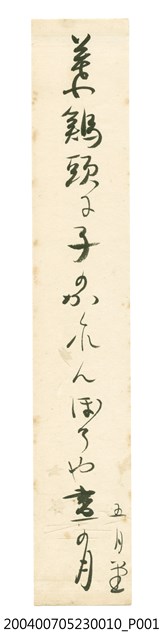 葉鶏頭に子のかくれんぼうや書の月
五月堂
200400705230010_P001